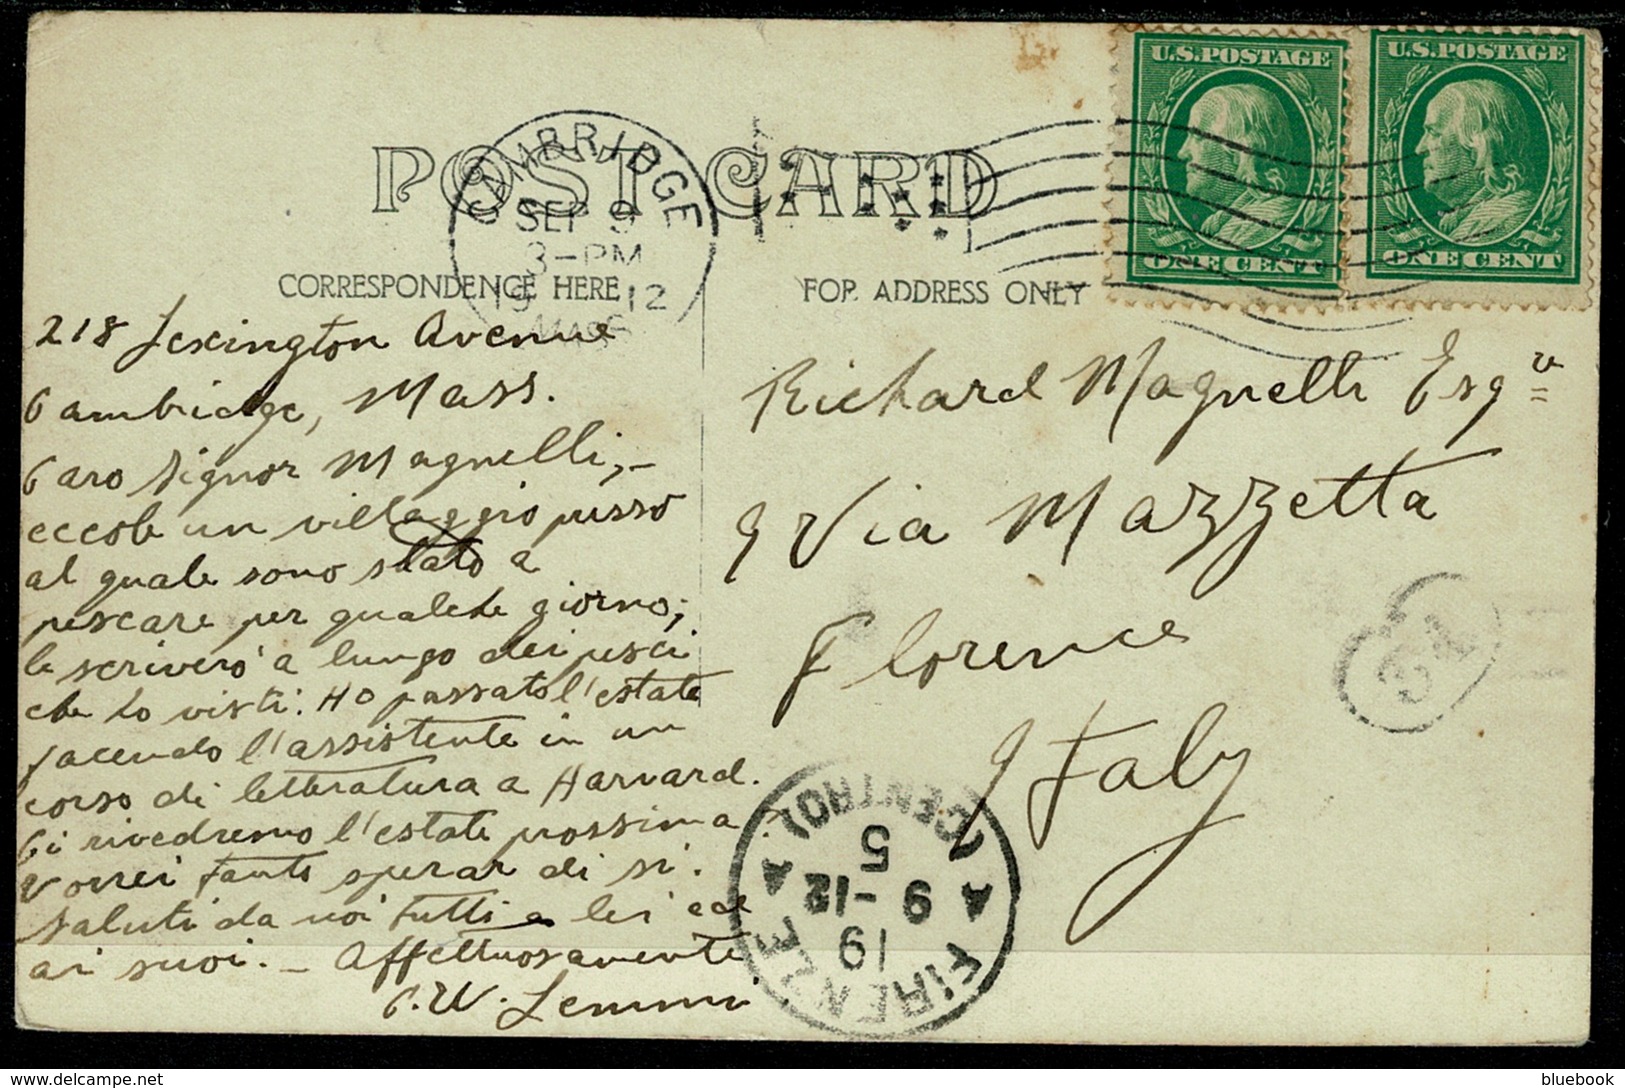 U.S. POSTAGE
ONE CENT
U.S. POSTAGE
ONE CENT
POST CARD
CAMBRIDGE
SEP 9
3-PM
19 12
MASS
CORRESPONDENCE HERE
FOR ADDRESS ONLY
218 Lexington Avenue
Cambridge, Mass.
Caro Signor Magnelli,—
eccole un villaggio presso
al quale sono stato a
pescare per qualche giorno;
le scriverò a lungo dei pesci
che ho visti. Ho passato l'estate
facendo l'assistente in un
corso di letteratura a Harvard.
Ci rivedremo l'estate prossima?
Vorrei tanto sperar di si.
Saluti da noi tutti a lei ed
ai suoi. — Affettuosamente
C. W. Lemmi
Richard Magnelli Esqr
9 Via Mazzetta
Florence
Italy
FIRENZE
(CENTRO)
19
9 -12
5